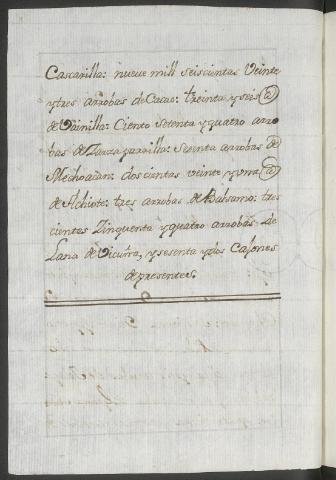 Cascarilla: nueve mill seiscientas Veinte
ytres arrobas de Cacao: treinta y seis @
de Vainilla: Ciento Setenta y quatro arro
bas de Zarzaparrilla: Setenta arrobas de
Mechoacan: doscientas veinte y una @
de Achiote: tres arrobas de Balsamo: tres
cientas Zinquenta y quatro arrobas de
Lana de Vicuña, y sesenta y dos Cajones
de presentes.